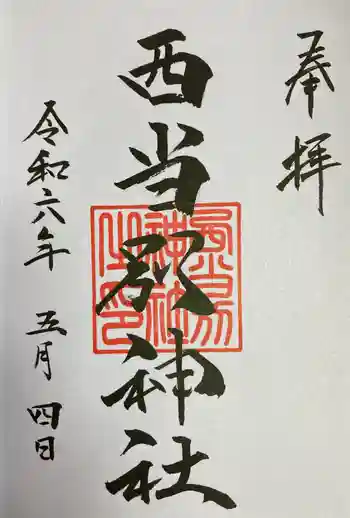 奉拝
西当別神社
神社
之印
令和六年 五月四日